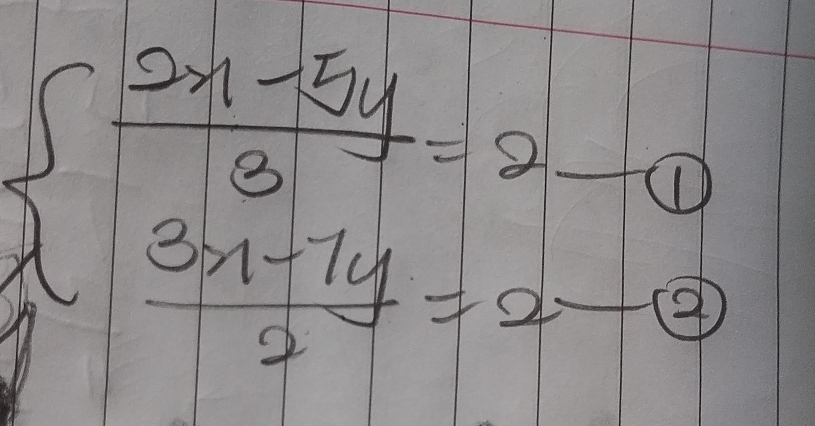 2x - 5y
3
= 2 — ①
3x - 7y
2
= 2 — ②